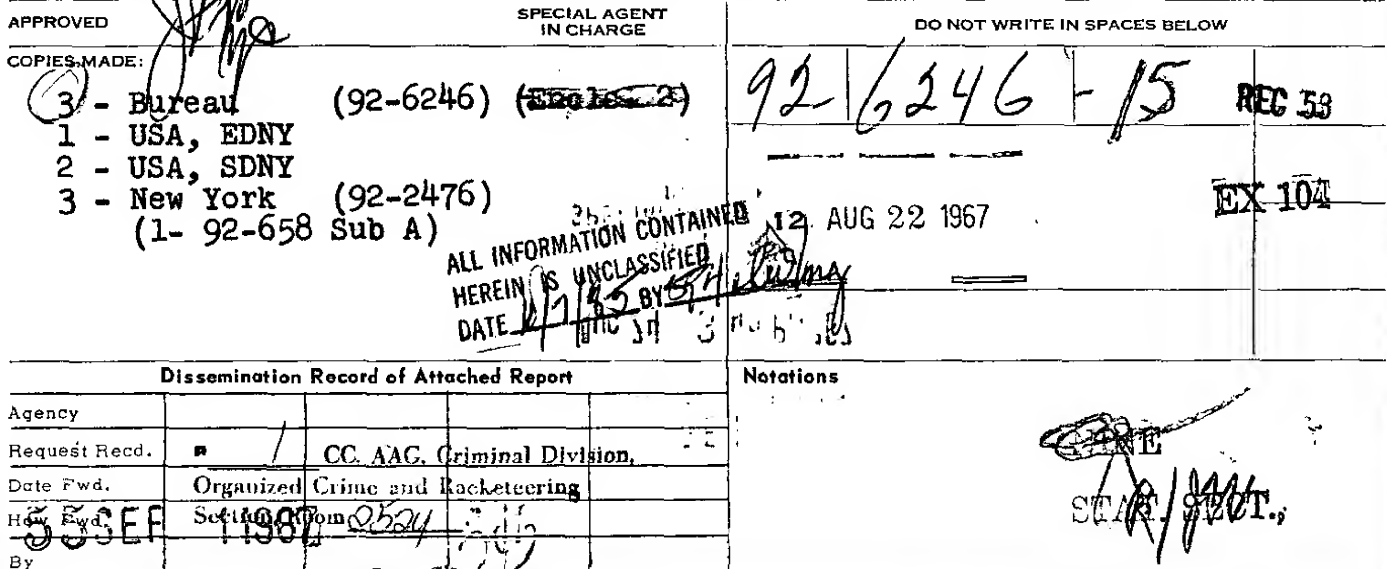 APPROVED
SPECIAL AGENT
IN CHARGE
DO NOT WRITE IN SPACES BELOW
COPIES MADE:
3 - Bureau (92-6246)
1 - USA, EDNY
2 - USA, SDNY
3 - New York (92-2476)
(1- 92-658 Sub A)
92-6246-15
REC 53
EX 104
12 AUG 22 1967
ALL INFORMATION CONTAINED
HEREIN IS UNCLASSIFIED
DATE BY
Dissemination Record of Attached Report
Notations
Agency
Request Recd.
1 CC. AAG, Criminal Division,
Date Fwd.
Organized Crime and Racketeering
How Fwd.
Section, Room 2524
By
STAT. SECT.,